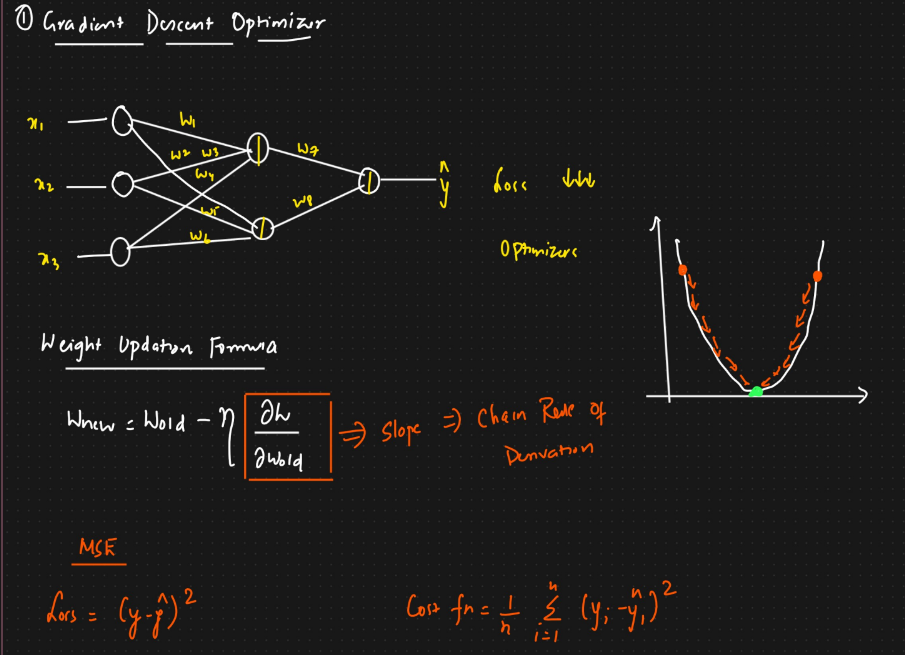 ① Gradient Descent Optimizer
x1 w1
w2 w3 w7
w4
x2 ŷ Loss ↓↓↓
w5 w8
w6
x3 Optimizers
Weight Updation Formula
Wnew = Wold - η ∂h/∂wold ⇒ Slope ⇒ Chain Rule of
Derivation
MSE
Loss = (y-ŷ)² Cost fn = 1/n Σ i=1 n (yi-ŷi)²